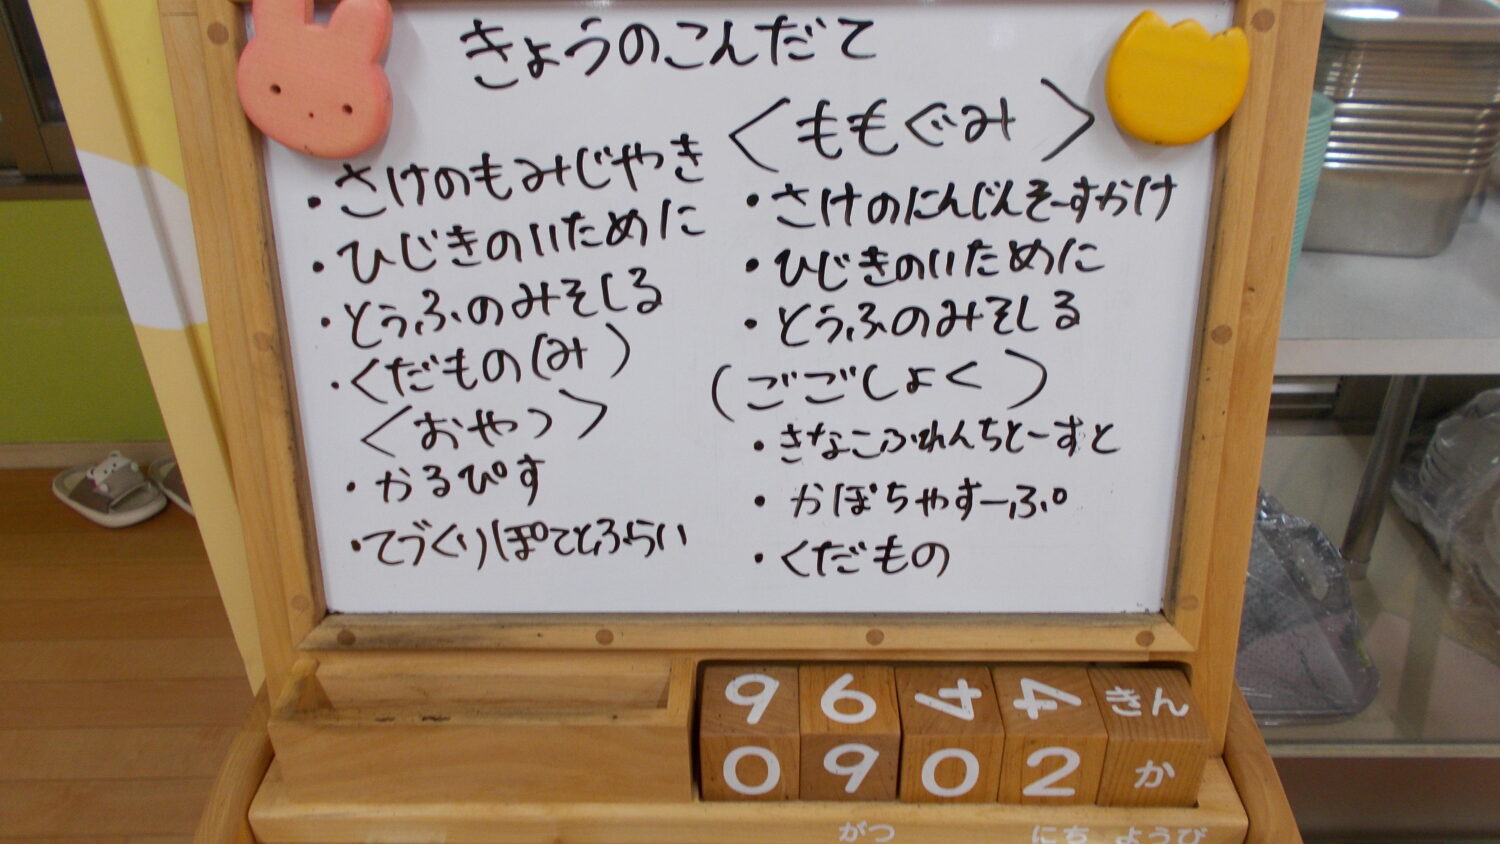 きょうのこんだて
・さけのもみじやき
・ひじきのいために
・とうふのみそしる
・くだもの(みかん)
<おやつ>
・かるぴす
・てづくりぽてとふらい
<ももぐみ>
・さけのにんじんそーすかけ
・ひじきのいために
・とうふのみそしる
(ごごしょく)
・きなこふれんちとーすと
・かぼちゃすーぷ
・くだもの
9 6 4 4 きん
0 9 0 2 か
がつ にち ようび